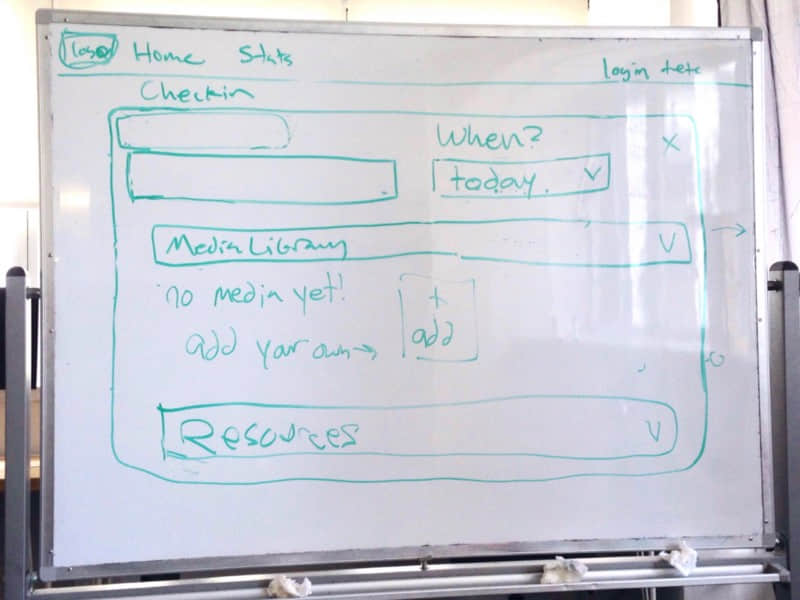 logo Home Stats login + etc
Checkin
When?
X
today. V
Media Library V
no media yet!
+
add your own → add
Resources V